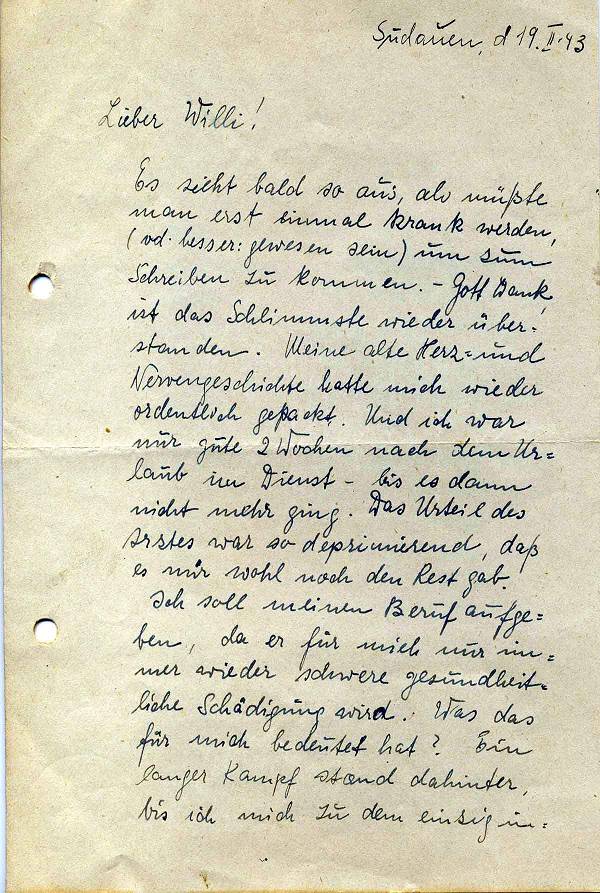 Sudauen, d 19.II.43
Lieber Willi!
Es sieht bald so aus, als müßte
man erst einmal krank werden,
(od. besser: gewesen sein) um zum
Schreiben zu kommen. – Gott Dank,
ist das Schlimmste wieder über=
standen. Meine alte Herz= und
Nervengeschichte hatte mich wieder
ordentlich gepackt. Und ich war
nur gute 2 Wochen nach dem Ur=
laub im Dienst – bis es dann
nicht mehr ging. Das Urteil des
Arztes war so deprimierend, daß
es mir wohl noch den Rest gab.
Ich soll meinen Beruf aufge=
ben, da er für mich nur im=
mer wieder schwere gesundheit=
liche Schädigung wird. Was das
für mich bedeutet hat? Ein
langer Kampf stand dahinter,
bis ich mich zu dem einzig in=